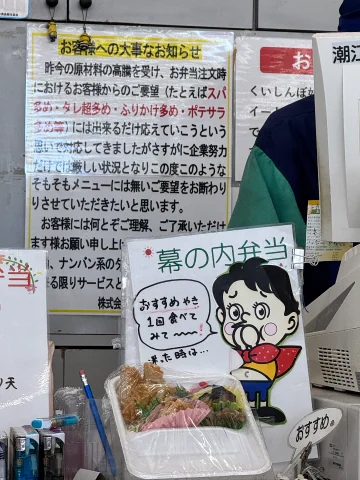 お客様への大事なお知らせ
昨今の原材料の高騰を受け、お弁当注文時
におけるお客様からのご要望(たとえばスパ
多め・タレ超多め・ふりかけ多め・ポテサラ
多め等)には出来るだけ応えていこうという
思いで対応してきましたがさすがに企業努力
だけでは厳しい状況となりこの度このような
そもそもメニューには無いご要望をお断わ
りさせていただきたいと思います。
お客様には何とぞご理解、ご了承いただけ
ます様お願い申し上
、ナンバン系のタ
る限りサービスと
株式会
お
くいしんぼ
イー
潮江
弁当
幕の内弁当
おすすめやき
1回食べて
みて〜
来た時は…
おすすめ